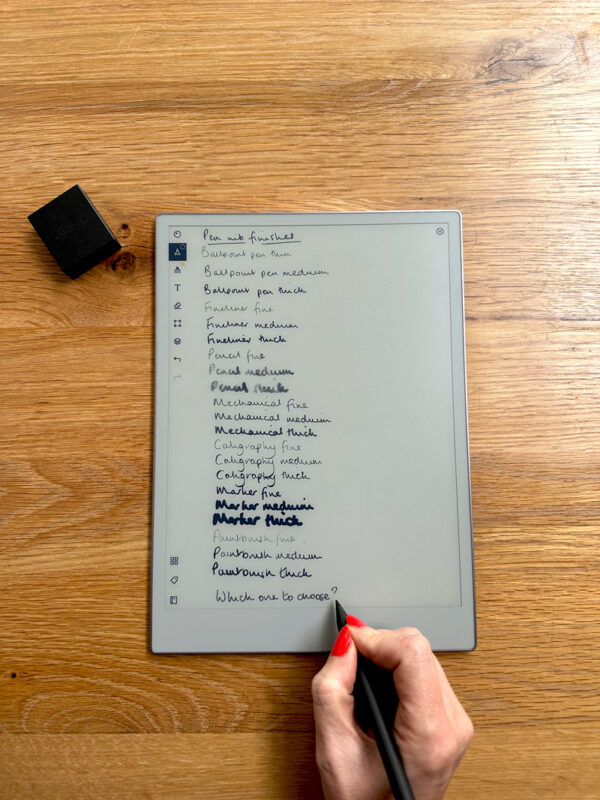 Pen nib finishes
Ballpoint pen thin
Ballpoint pen medium
Ballpoint pen thick
Fineliner fine
Fineliner medium
Fineliner thick
Pencil fine
Pencil medium
Pencil thick
Mechanical fine
Mechanical medium
Mechanical thick
Caligraphy fine
Caligraphy medium
Caligraphy thick
Marker fine
Marker medium
Marker thick
Paintbrush fine
Paintbrush medium
Paintbrush thick
Which one to choose?